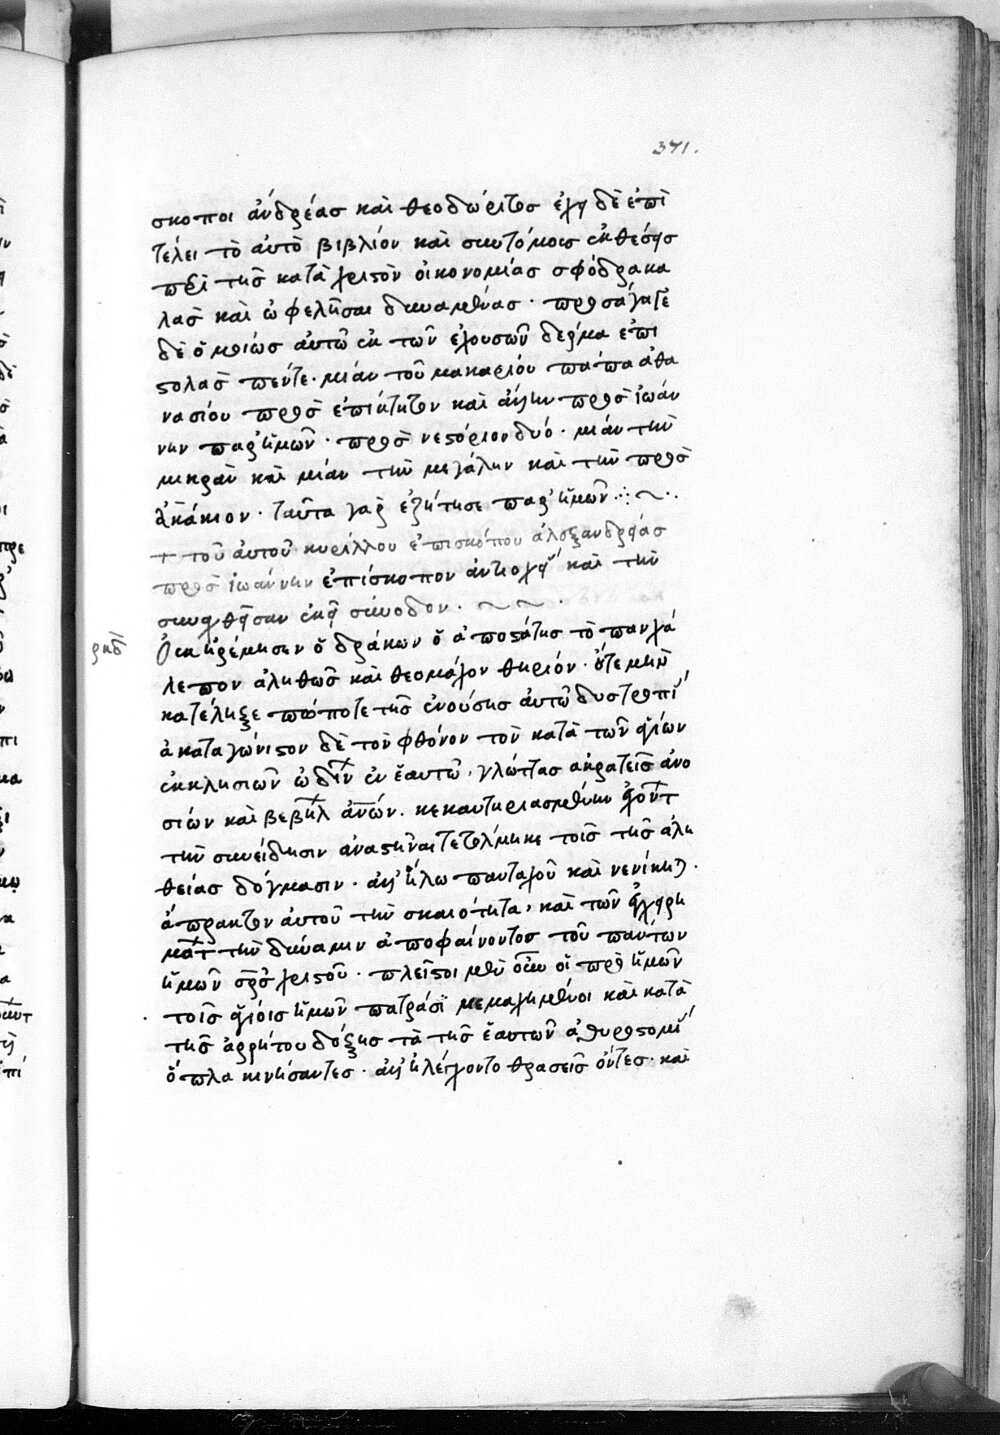 371.
σκοποι ἀνδρέας καὶ θεοδώριτος ἔχει δὲ ἐπὶ
τέλει τὸ αὐτὸ βιβλίον καὶ συντόμους ἐκθέσεις
περὶ τῆς κατὰ χριστὸν οἰκονομίας σφόδρα κα
λὰς καὶ ὠφελῆσαι δυναμένας · προσάγαγε
δὲ ὁμοίως αὐτῶ ἐκ τῶν ἐχουσῶν δέρμα ἐπι
στολὰς πέντε · μίαν τοῦ μακαρίου πάπα ἀθα
νασίου πρὸς ἐπίκτητον καὶ ἄλλην πρὸς ἰωάν
νην παρ' ἡμῶν · πρὸς νεστόριον δύο · μίαν τὴν
μικρὰν καὶ μίαν τὴν μεγάλην καὶ τὴν πρὸς
ἀκάκιον · ταῦτα γὰρ ἐζήτησε παρ' ἡμῶν
+ τοῦ αὐτοῦ κυρίλλου ἐπισκόπου ἀλεξανδρείας
πρὸς ἰωάννην ἐπίσκοπον ἀντιοχεί καὶ τὴν
συναχθεῖσαν ἐκεῖ σύνοδον ·
ρκδ
Οὐκ ἠρέμησεν ὁ δράκων ὁ ἀποστάτης τὸ παγχά
λεπον ἀληθῶς καὶ θεομάχον θηρίον · οὔτε μὴν
κατέληξε πώποτε τῆς ἐνούσης αὐτῶ δυστροπί
ἀκαταγώνιστον δὲ τὸν φθόνον τὸν κατὰ τῶν ἁγίων
ἐκκλησιῶν ὠδίν ἐν ἑαυτῶ · γλώττας ἀκρατεῖς ἀνο
σίων καὶ βεβήλ ἀνων · κεκαυτηριασμένην ἐχοντ
τὴν συνείδησιν ἀναστῆναι τετόλμηκε τοῖς τῆς ἀλη
θείας δόγμασιν · ἀλλ' ἥλω πανταχοῦ καὶ νενίκηται ·
ἄπρακτον αὐτοῦ τὴν σκαιότητα, καὶ τῶν ἐγχειρη
ματ τὴν δύναμιν ἀποφαίνοντος τοῦ πάντων
ἡμῶν σρς χριστοῦ · πλεῖστοι μὲν οὖν οἱ πρὸ ἡμῶν
τοῖς ἁγίοις ἡμῶν πατράσϊ μεμαχημένοι καὶ κατὰ
τῆς ἀρρήτου δόξης τὰ τῆς ἑαυτῶν ἀθυροστομί
ὅπλα κινήσαντες · ἀλλ' ἠλέγχοντο θρασεῖς ὄντες · καὶ